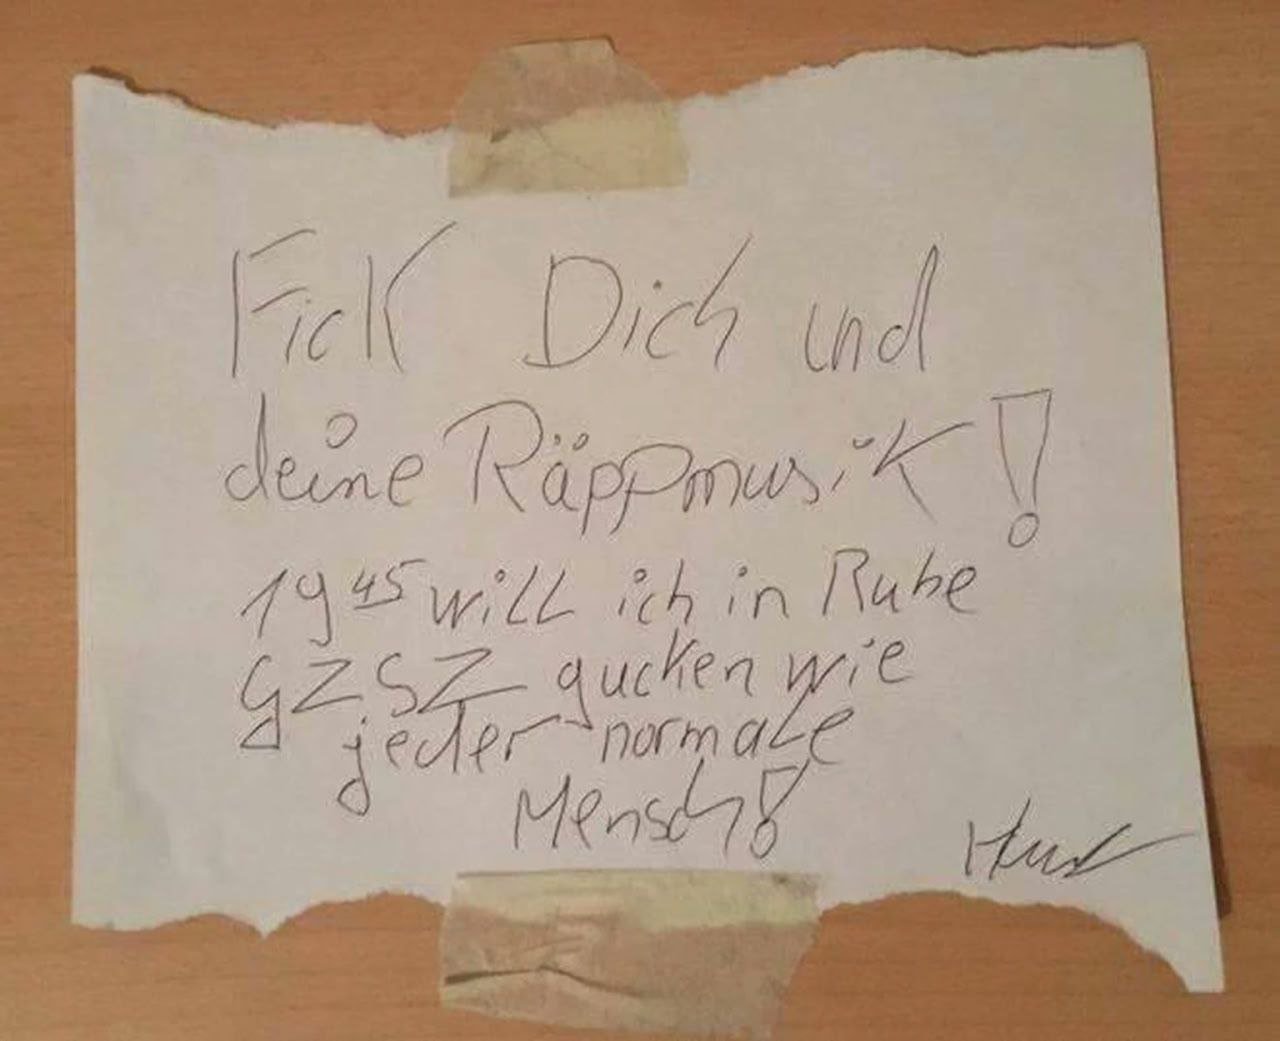 Fick Dich und
deine Räppmusik!
19⁴⁵ will ich in Ruhe
GZSZ gucken wie
jeder normale
Mensch!